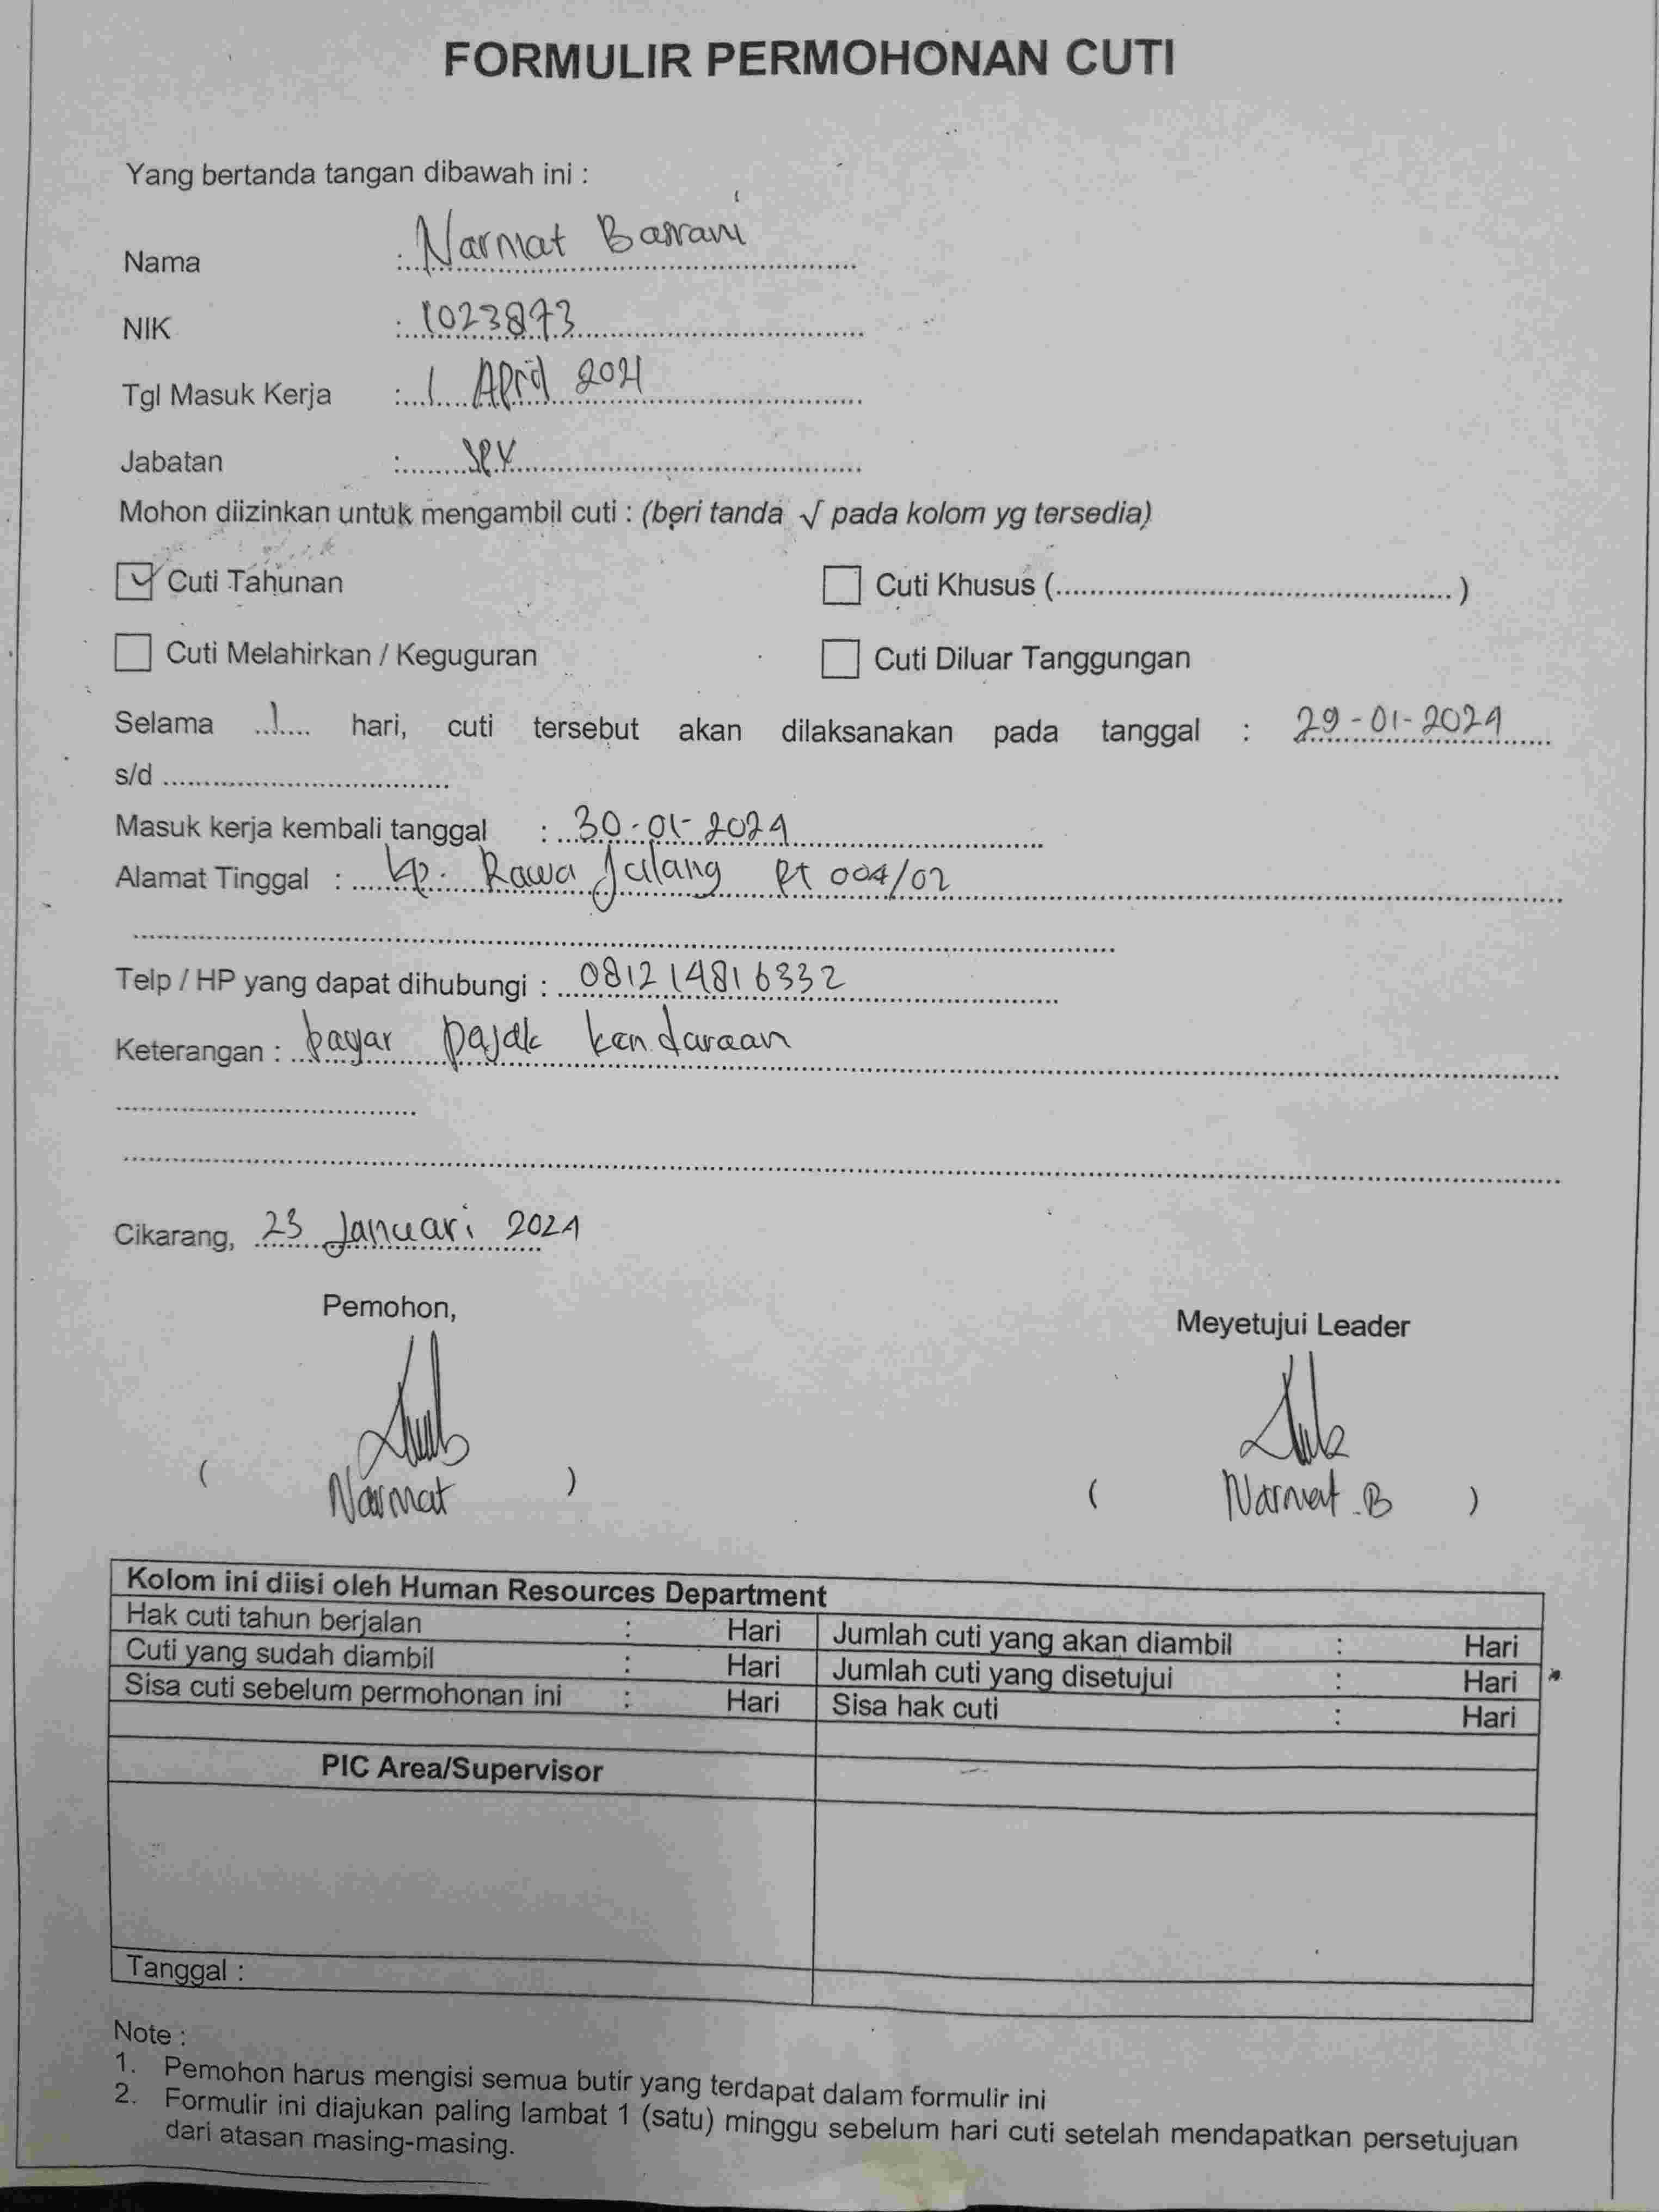 FORMULIR PERMOHONAN CUTI
Yang bertanda tangan dibawah ini :
Nama : Narmat Basrani
NIK : 1023873
Tgl Masuk Kerja : 1 April 2021
Jabatan : SPV
Mohon diizinkan untuk mengambil cuti : (beri tanda √ pada kolom yg tersedia)
Cuti Tahunan Cuti Khusus (..........)
Cuti Melahirkan / Keguguran Cuti Diluar Tanggungan
Selama 1 hari, cuti tersebut akan dilaksanakan pada tanggal : 29-01-2024
s/d
Masuk kerja kembali tanggal : 30-01-2024
Alamat Tinggal : kp. Rawa Julang Rt 004/02
Telp / HP yang dapat dihubungi : 081214816332
Keterangan : bayar pajak kendaraan
Cikarang, 23 Januari 2024
Pemohon, Meyetujui Leader
( Narmat ) ( Narmat .B )
Kolom ini diisi oleh Human Resources Department
Hak cuti tahun berjalan : Hari Jumlah cuti yang akan diambil : Hari
Cuti yang sudah diambil : Hari Jumlah cuti yang disetujui : Hari
Sisa cuti sebelum permohonan ini : Hari Sisa hak cuti : Hari
PIC Area/Supervisor
Tanggal :
Note :
1. Pemohon harus mengisi semua butir yang terdapat dalam formulir ini
2. Formulir ini diajukan paling lambat 1 (satu) minggu sebelum hari cuti setelah mendapatkan persetujuan
dari atasan masing-masing.